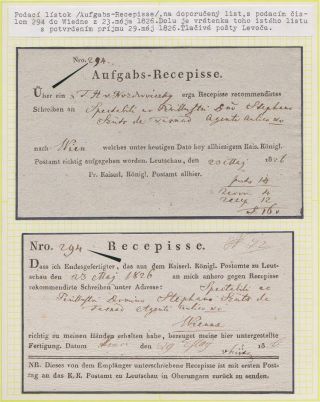 Podací lístok /Aufgabs-Recepisse/,na doporučený list,s podacím čís-
lom 294 do Wiedne z 23.mája 1826.Dolu je vrátenka toho istého listu
s potvrdením príjmu 29.máj 1826.Tlačivá pošty Levoča.
Nro. 294.
Aufgabs-Recepisse.
Über ein von erga Recepisse recommendirtes
Schreiben an Spectabilis ac Dno Stephano
Agenti Aulico
nach Wien welches unter heutigem Dato bey allhiesigem Kais. Königl.
Postamt richtig aufgegeben worden. Leutschau, den 23 May 1826
Pr. Kaiserl. Königl. Postamt allhier.
Nro. 294 Recepisse.
Dass ich Endesgefertigter, das aus dem Kaiserl. Königl. Postamte zu Leut-
schau den 23 May 1826 an mich anhero gegen Recepisse
rekommendirte Schreiben unter Adresse: Spectabilis ac
Domino Stephano
Agenti Aulico
Vienna
richtig zu meinen Händen erhalten habe, bezeuget meine hier untergestellte
Fertigung. Datum den 29 May 1826
NB. Dieses von dem Empfänger unterschriebene Recepisse ist mit ersten Post-
tag an das K.K. Postamt zu Leutschau in Oberungarn zurück zu senden.